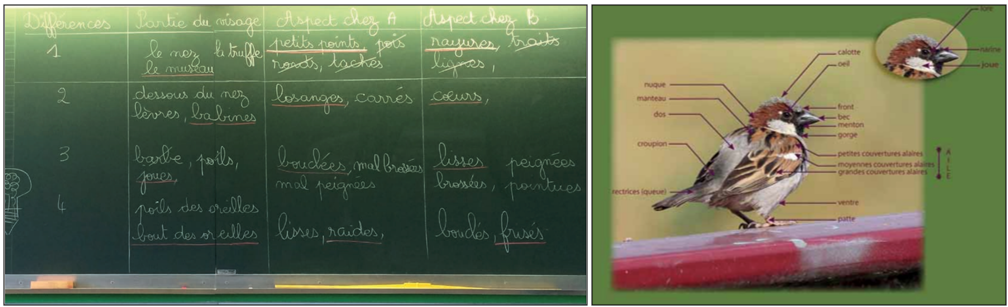 Différences Partie du visage Aspect chez A Aspect chez B
1 le nez, la truffe petits points, pois rayures, traits
le museau ronds, taches lignes,
2 dessous du nez losanges, carrés cœurs,
lèvres, babines
3 barbe, poils, bouclées, mal brossées lisses, peignées
joues, mal peignées brossées, pointues
4 poils des oreilles
bout des oreilles lisses, raides, bouclés, frisés
lore
narine
joue
calotte
oeil
nuque
manteau
dos
croupion
rectrices (queue)
front
bec
menton
gorge
petites couvertures alaires
moyennes couvertures alaires
grandes couvertures alaires
AILE
ventre
patte